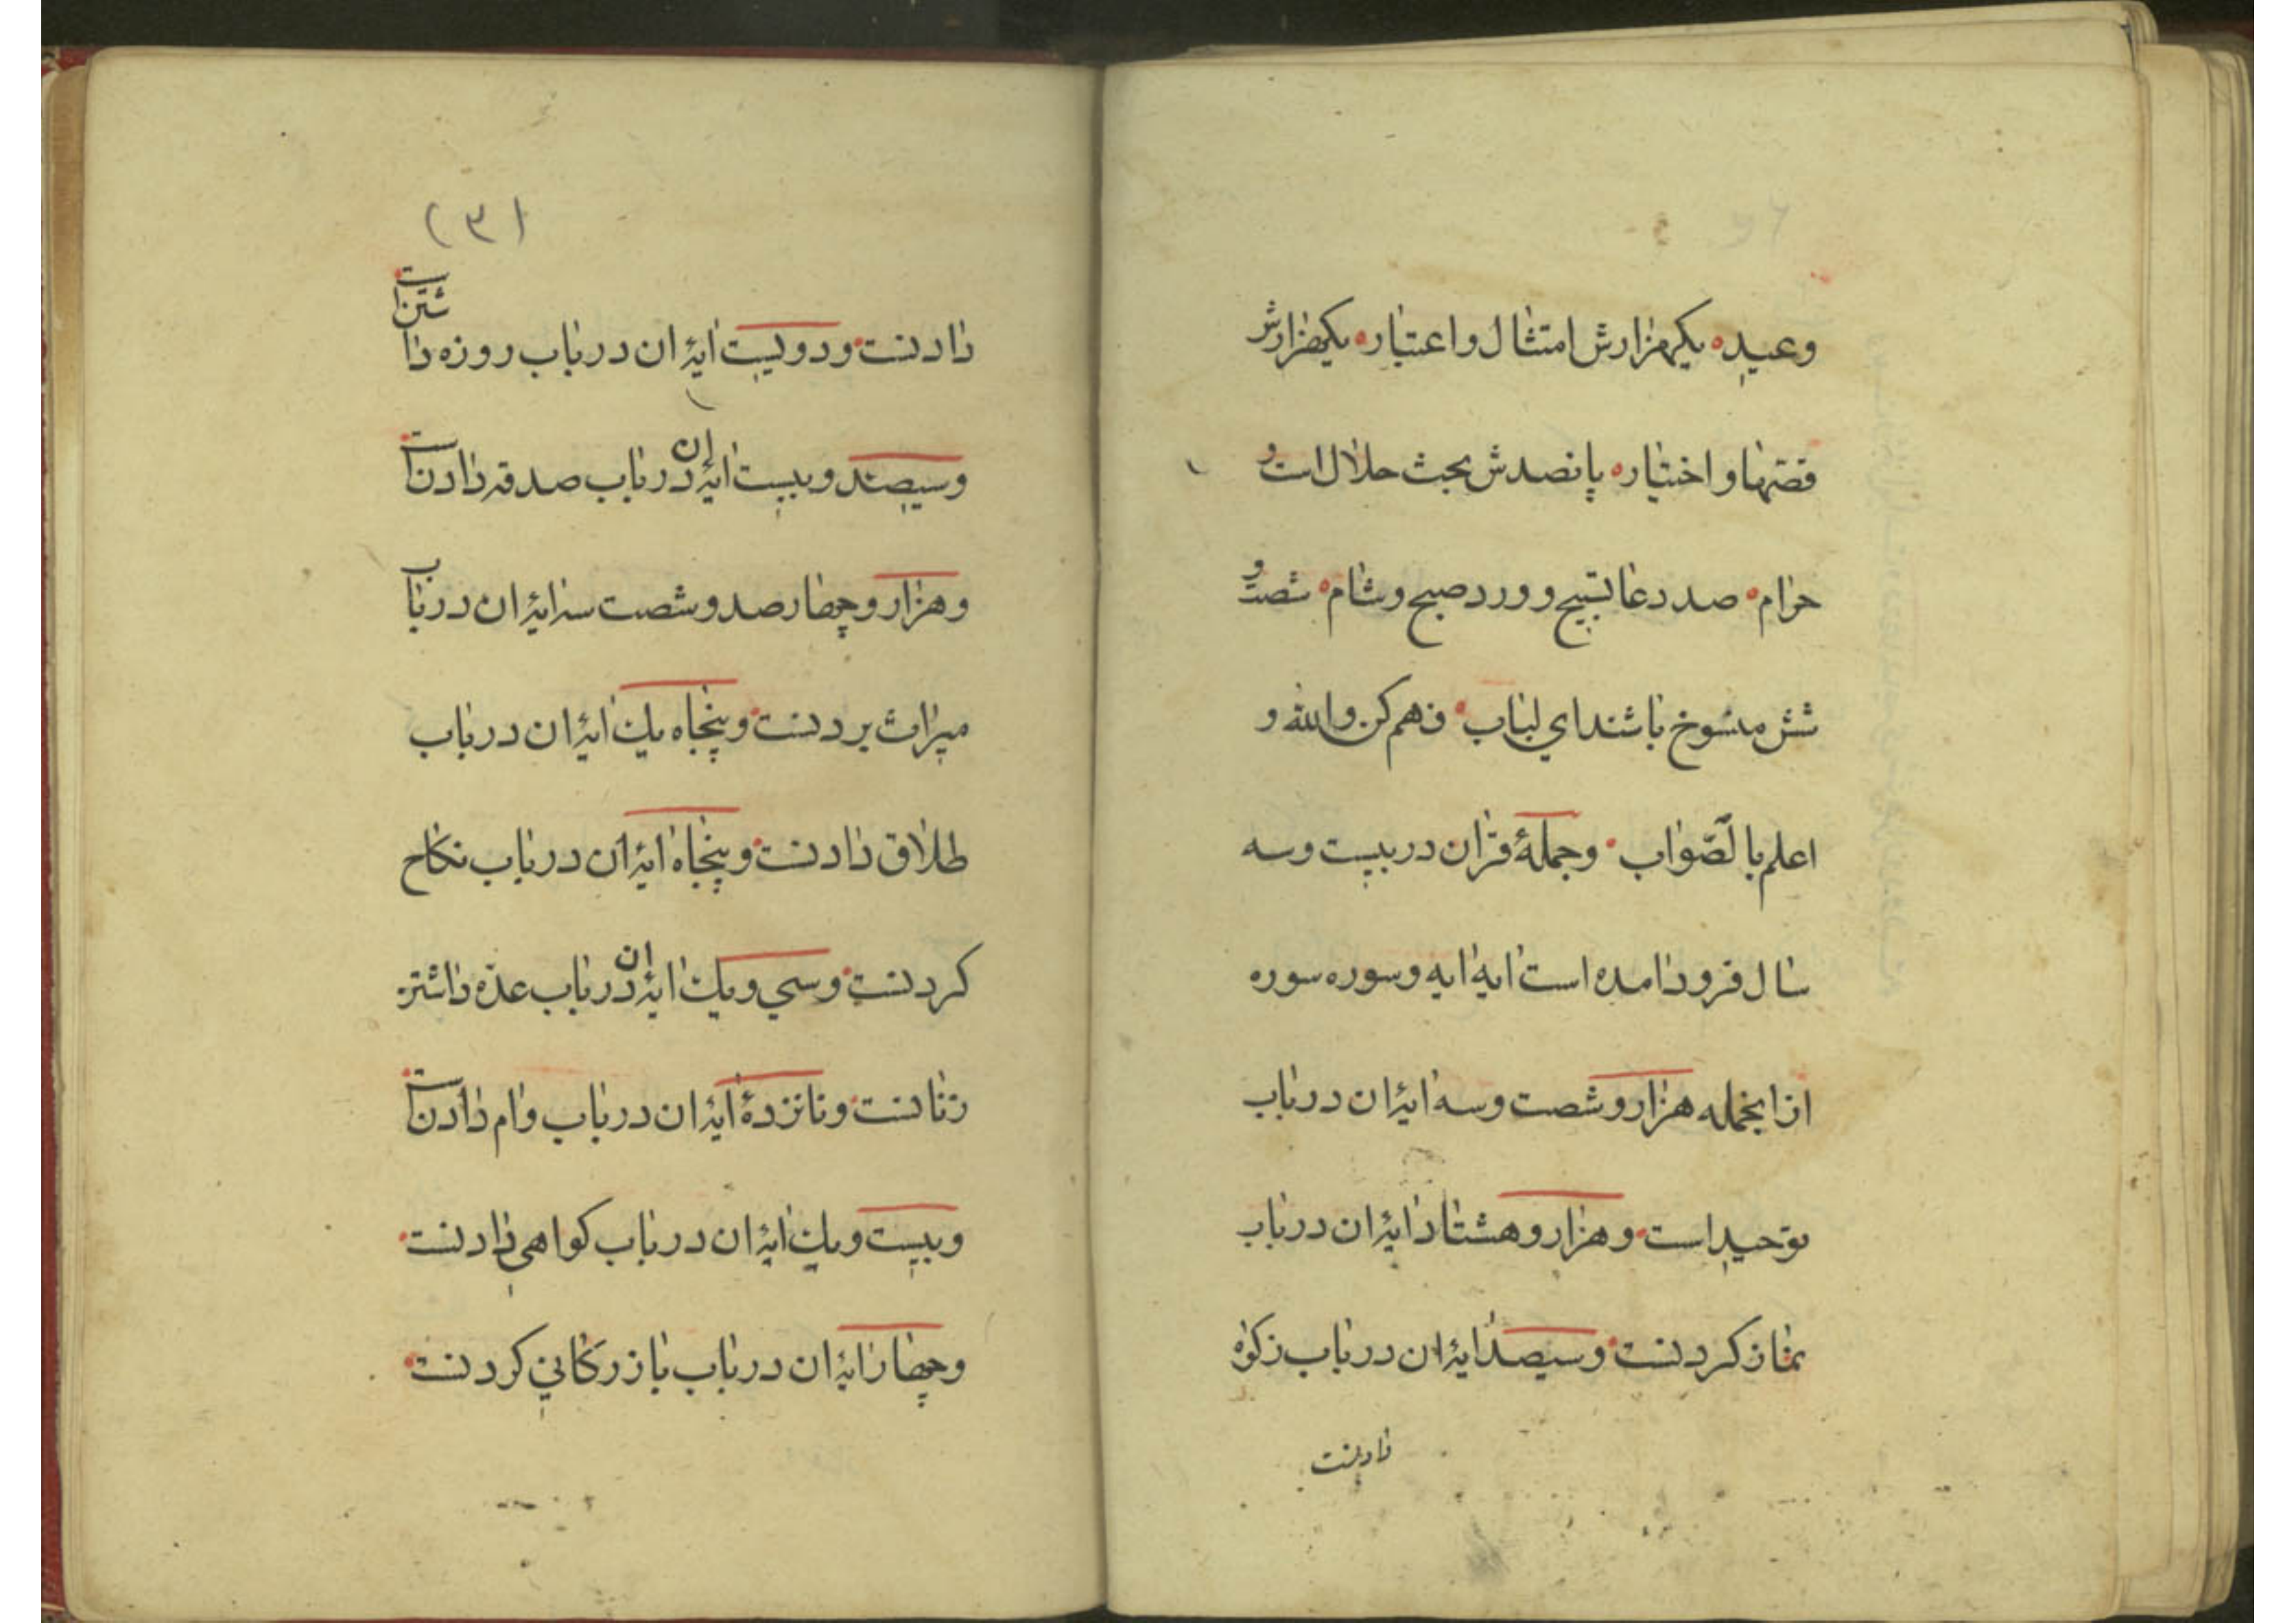 وعید یکهزارش امتثال واعتبار یکهزارش
قصّها واختیار پانصدش بحث حلال است و
حرام صد دعا تسبیح وورد صبح وشام شصت و
شش منسوخ باشند ای لباب فهم کن والله و
اعلم بالصّواب وجملۀ قرآن در بیست وسه
سال فرود امده است ایه ایه وسوره سوره
از انجمله هزار وشصت وسه ایۀ ان در باب
توحید است وهزار وهشتاد ایۀ ان در باب
نماز کردنست وسیصد ایۀ ان در باب زکوٰة
دادنست
(۳۱
دادنست ودویست ایۀ ان در باب روزه داشتن است
وسیصد وبیست ایۀ ان در باب صدقه دادن است
وهزار وچهار صد وشصت سه ایۀ ان در باب
میراث بردنست وپنجاه یك ایۀ ان در باب
طلاق دادنست وپنجاه ایۀ ان در باب نکاح
کردنست وسی ویك ایۀ ان در باب عدّه داشتن
زنانست وپانزده ایۀ ان در باب وام دادن است
وبیست ویك ایۀ ان در باب کواهی دادنست
وچهار ایۀ ان در باب بازرکانی کردنست